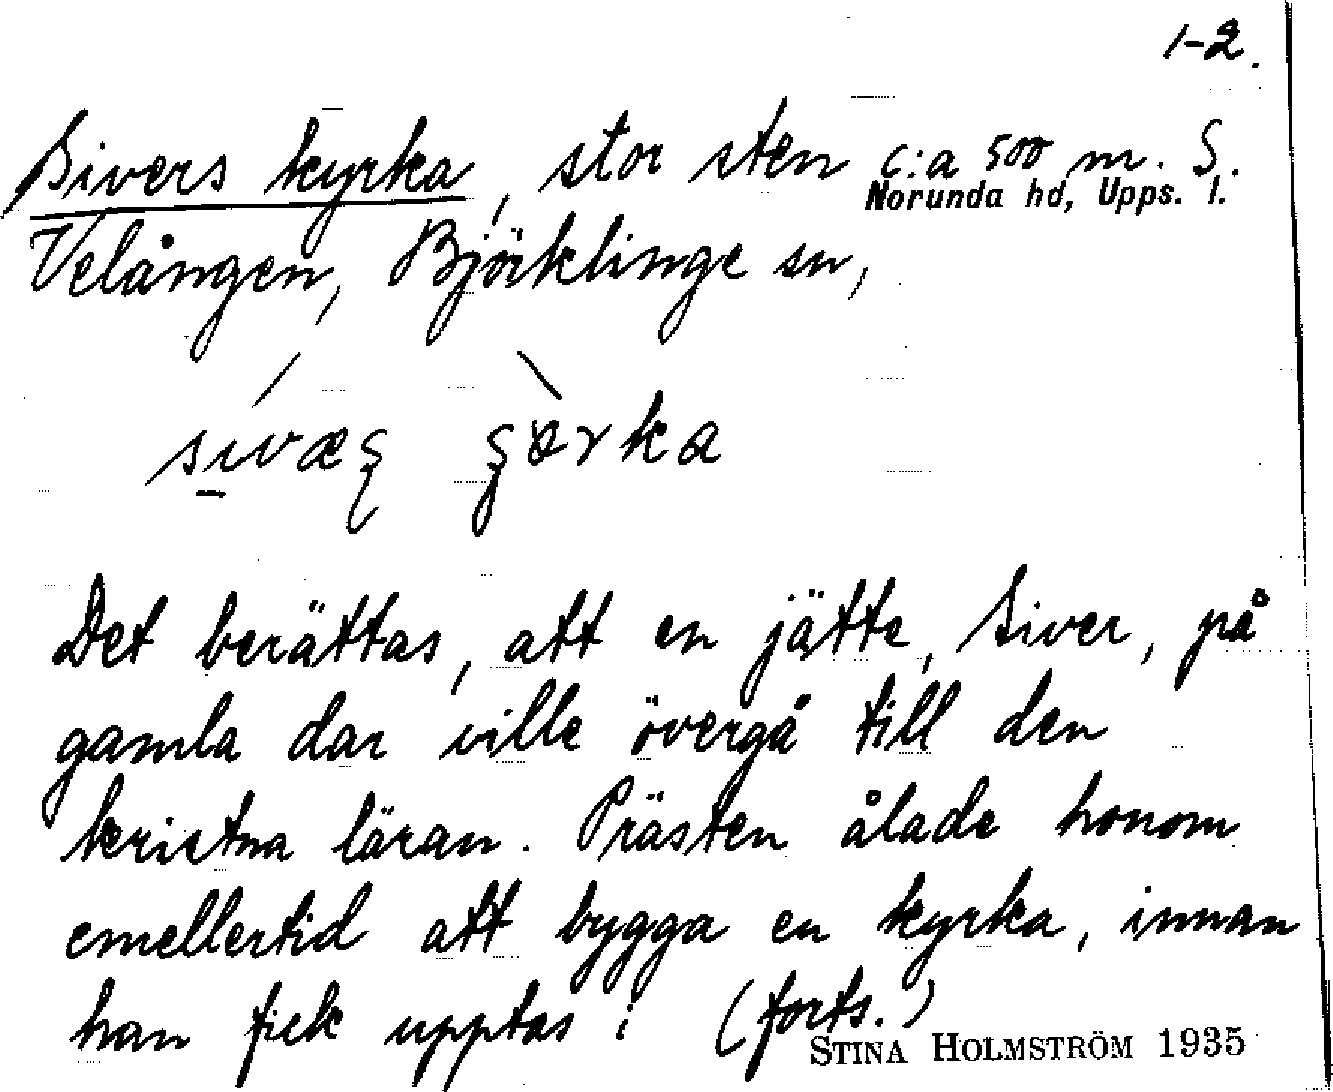 1-2.
Sivers kyrka, stor sten c:a 500 m. S.
Norunda hd, Upps. l.
Velången, Björklinge sn,
Det berättas, att en jätte, Siver, på
gamla dar ville övergå till den
kristna läran. Prästen ålade honom
emellertid att bygga en kyrka, innan
han fick upptas i (forts.)
STINA HOLMSTRÖM 1935